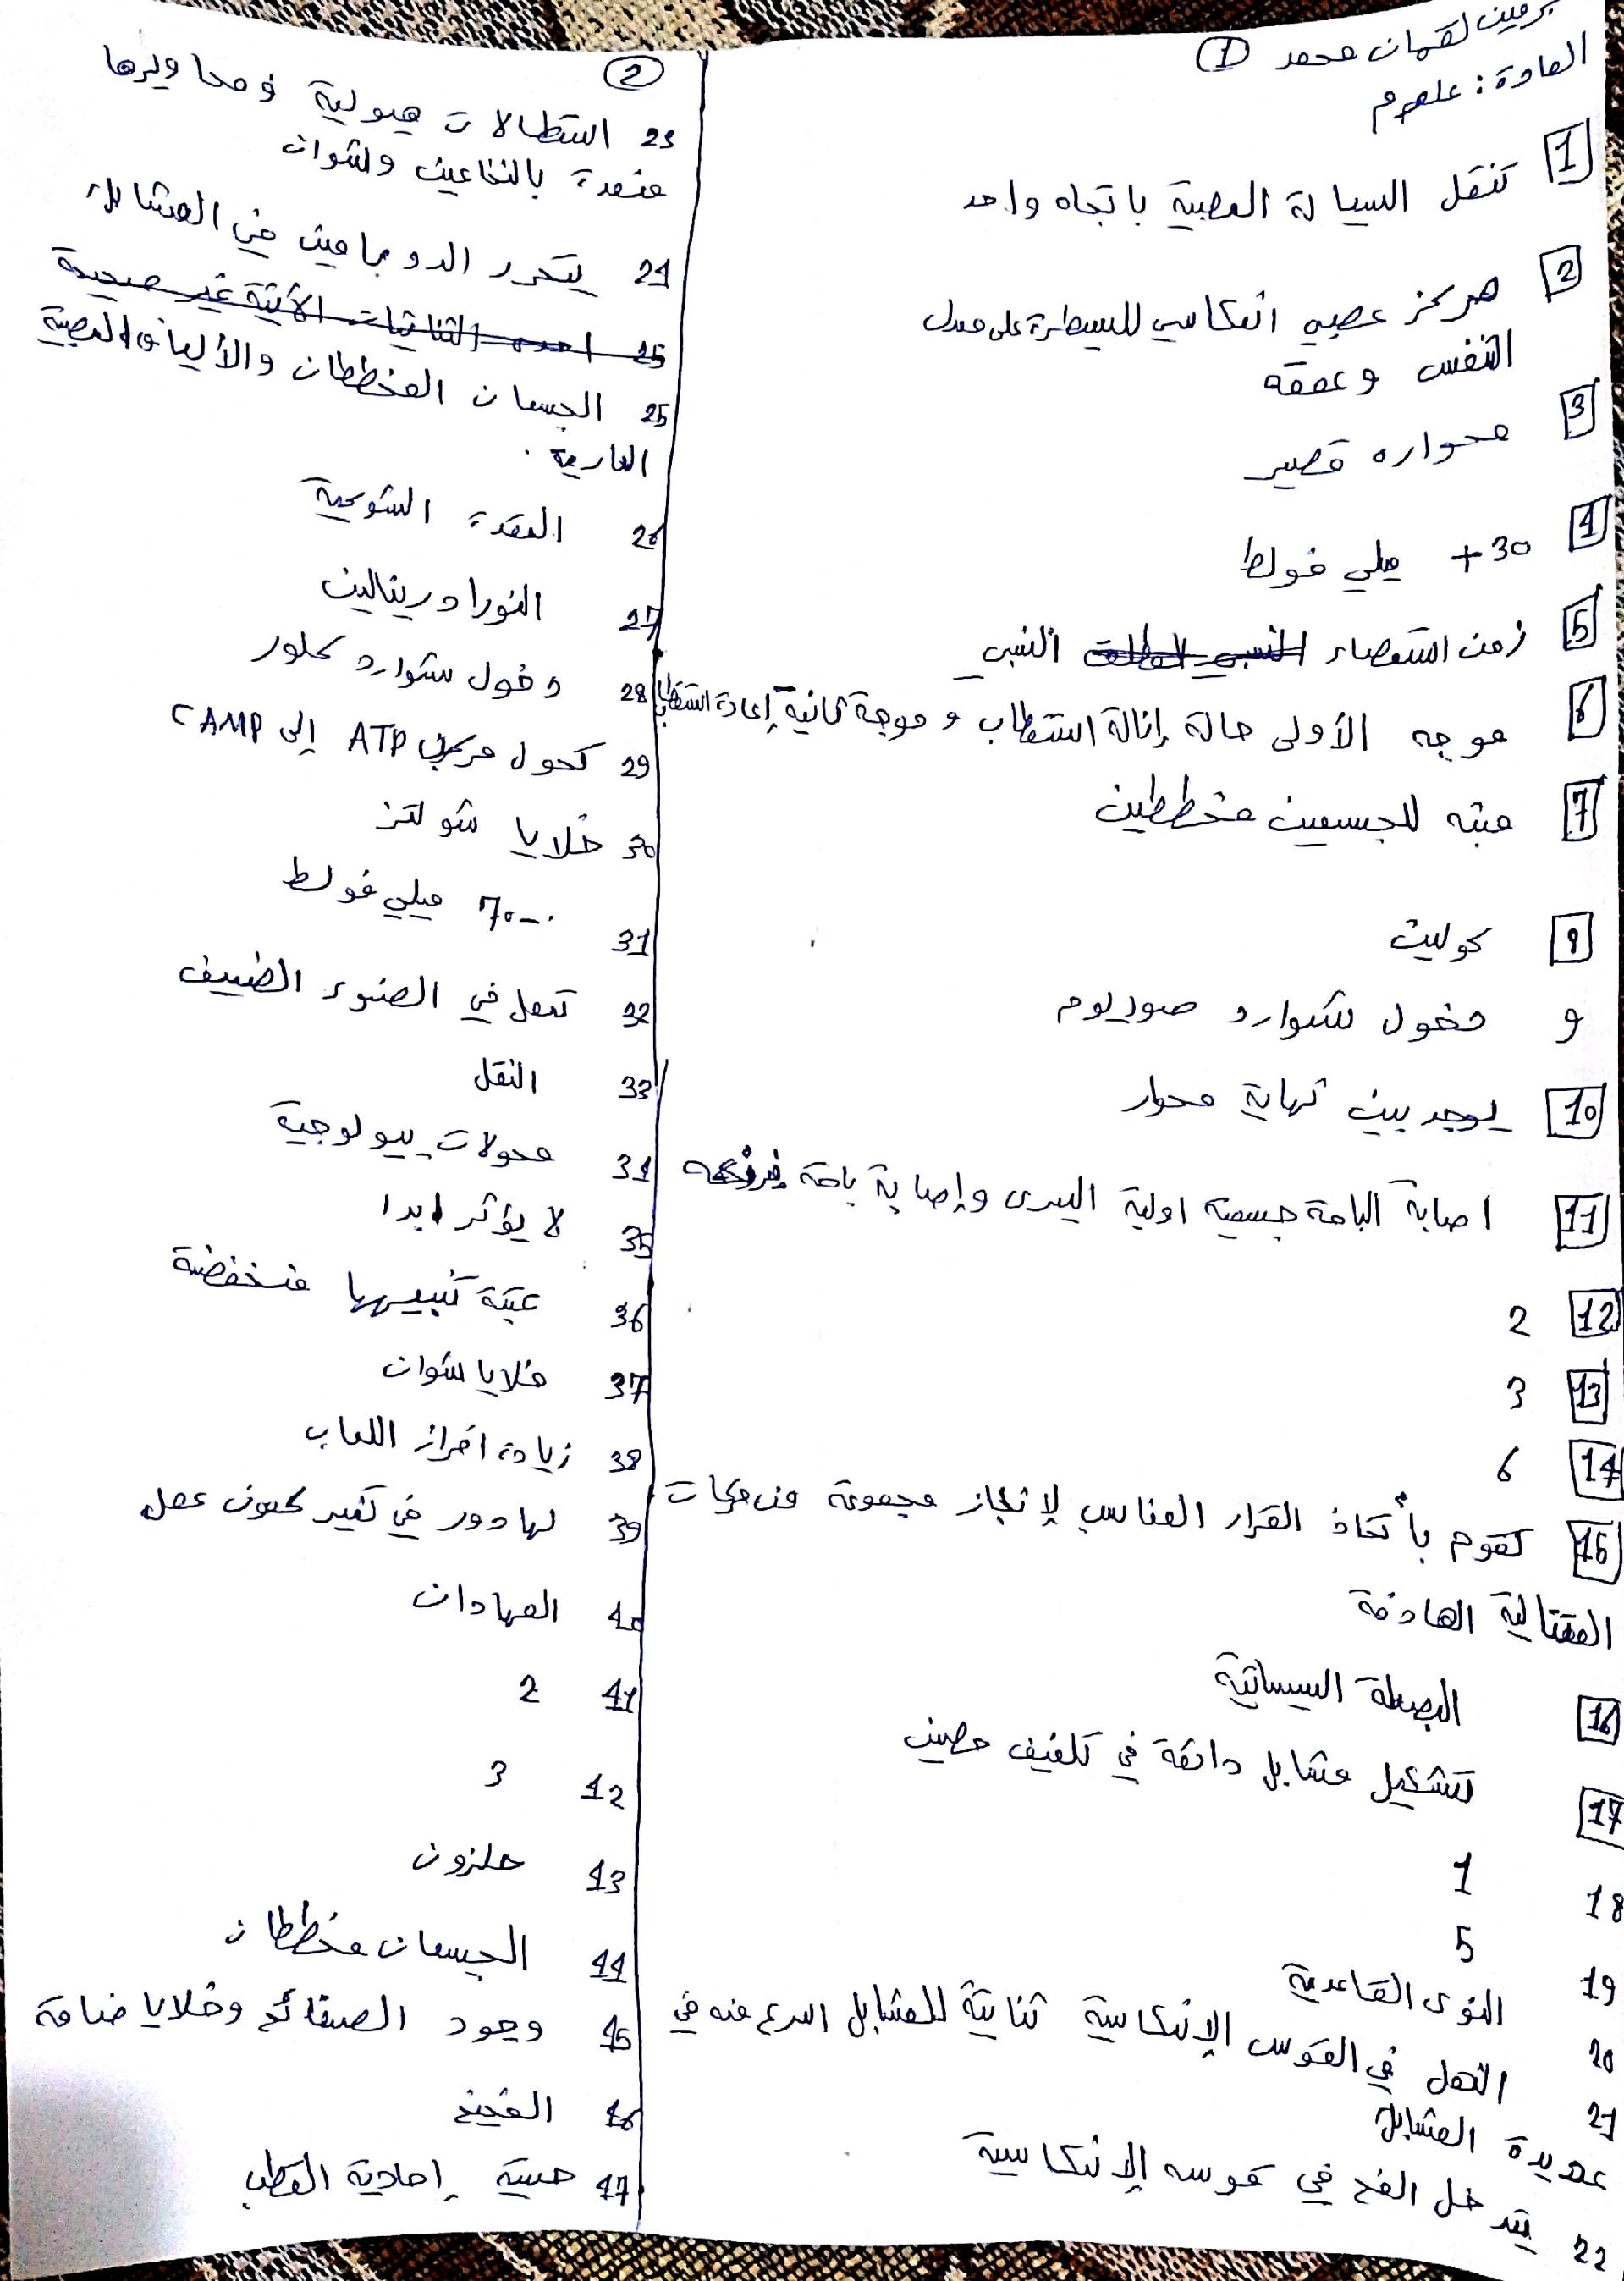 نرمين لقمان محمد 1
المادة: علوم
1 تنتقل السيالة العصبية باتجاه واحد
2 مركز عصبي انعكاسي للسيطرة على معدل
التنفس وعمقه
3 محواره قصير
4 +30 ميلي فولط
5 زمن استعصاء النسبي
6 موجه الأولى حالة إزالة استقطاب و موجة ثانية إعادة استقطاب
7 منبه للجسمين مخططين
8 كولين
9 دخول شوارد صوديوم
10 يوجد بين نهاية محوار
11 اصابة الباحة جسمية اولية اليسرى وإصابة باحة فيرنكه
12 2
13 3
14 6
15 تقوم بأتخاذ القرار المناسب لإنجاز مجموعة من حركات
المتتالية الهادفة
16 البصلة السيسائية
17 تشكيل مشابك دائمة في تلفيف حصين
18 1
19 5
20 النوى القاعدية
21 النقل في القوس الإنعكاسية ثنائية للمشابك اسرع منه في
عديدة المشابك
22 يتدخل المخ في قوسه الإنعكاسية
2
23 استطالات هيولية ومحاويرها
مغمدة بالنخاعين وشوان
24 يتحرر الدوبامين في المشابك
25 احدى الثنائيات الآتية غير صحيحة
25 الجسمان المخططان والألياف العصبية
العارية.
26 العقدة الشوكية
27 النورادرينالين
28 دخول شوارد كلور
29 تحول مركب ATP إلى CAMP
30 خلايا شولتز
31 -70 ميلي فولط
32 تعمل في الضوء الضعيف
33 النقل
34 محولات بيولوجية
35 لا يؤثر ابدا
36 عتبة تنبيهها منخفضة
37 خلايا شوان
38 زيادة افراز اللعاب
39 لها دور في تغير كمون عمل
40 المهادان
41 2
42 3
43 حلزون
44 الجسمان مخططان
45 وجود الصفائح وخلايا ضامة
46 المخيخ
47 حسية إحادية القطب